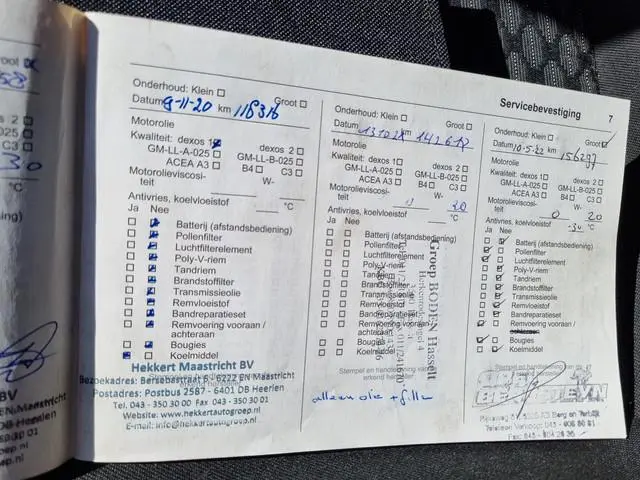 Servicebevestiging 7
Onderhoud: Klein □
Groot □
Datum 9-11-20 km 118316
Motorolie
Kwaliteit: dexos 1 □
dexos 2 □
GM-LL-A-025 □ GM-LL-B-025 □
ACEA A3 □ B4 □ C3 □
Motorolieviscosi- W-
teit
Antivries, koelvloeistof °C
Ja Nee
Batterij (afstandsbediening)
Pollenfilter
Luchtfilterelement
Poly-V-riem
Tandriem
Brandstoffilter
Transmissieolie
Remvloeistof
Bandreparatieset
Remvoering vooraan /
achteraan
Bougies
Koelmiddel
Hekkert Maastricht BV
Bezoekadres: Bersebastraat 6 - 6222 EN Maastricht
Postadres: Postbus 2587 - 6401 DB Heerlen
Tel. 043 - 350 30 00 Fax 043 - 350 30 01
Website: www.hekkertautogroep.nl
E-mail: info@hekkertautogroep.nl
Onderhoud: Klein □
Groot □
Datum km
Motorolie
Kwaliteit: dexos 1 □
dexos 2 □
GM-LL-A-025 □ GM-LL-B-025 □
ACEA A3 □ B4 □ C3 □
Motorolieviscosi- W-
teit 0 20
Antivries, koelvloeistof °C
Ja Nee
Batterij (afstandsbediening)
Pollenfilter
Luchtfilterelement
Poly-V-riem
Tandriem
Brandstoffilter
Transmissieolie
Remvloeistof
Bandreparatieset
Remvoering vooraan /
achteraan
Bougies
Koelmiddel
Groep BODEN Hasselt
Stempel en handtekening van
erkend hersteller
alleen olie + filter
Onderhoud: Klein □
Groot
Datum 10-5-22 km 156297
Motorolie
Kwaliteit: dexos 1 □
dexos 2 □
GM-LL-A-025 □ GM-LL-B-025 □
ACEA A3 □ B4 □ C3 □
Motorolieviscosi- W-
teit 0 20
Antivries, koelvloeistof °C
Ja Nee
Batterij (afstandsbediening)
Pollenfilter
Luchtfilterelement
Poly-V-riem
Tandriem
Brandstoffilter
Transmissieolie
Remvloeistof
Bandreparatieset
Remvoering vooraan /
Bougies
Koelmiddel